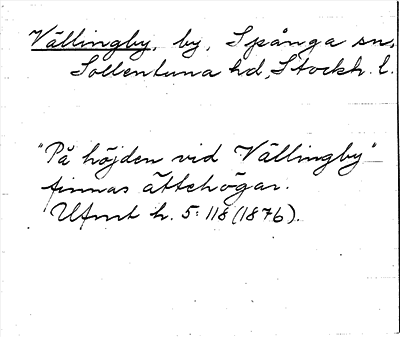 Vällingby, by, Spånga sn,
Sollentuna hd, Stockh. l.
"På höjden vid Vällingby"
finnas ättehögar.
Ufmt h. 5: 118 (1876).